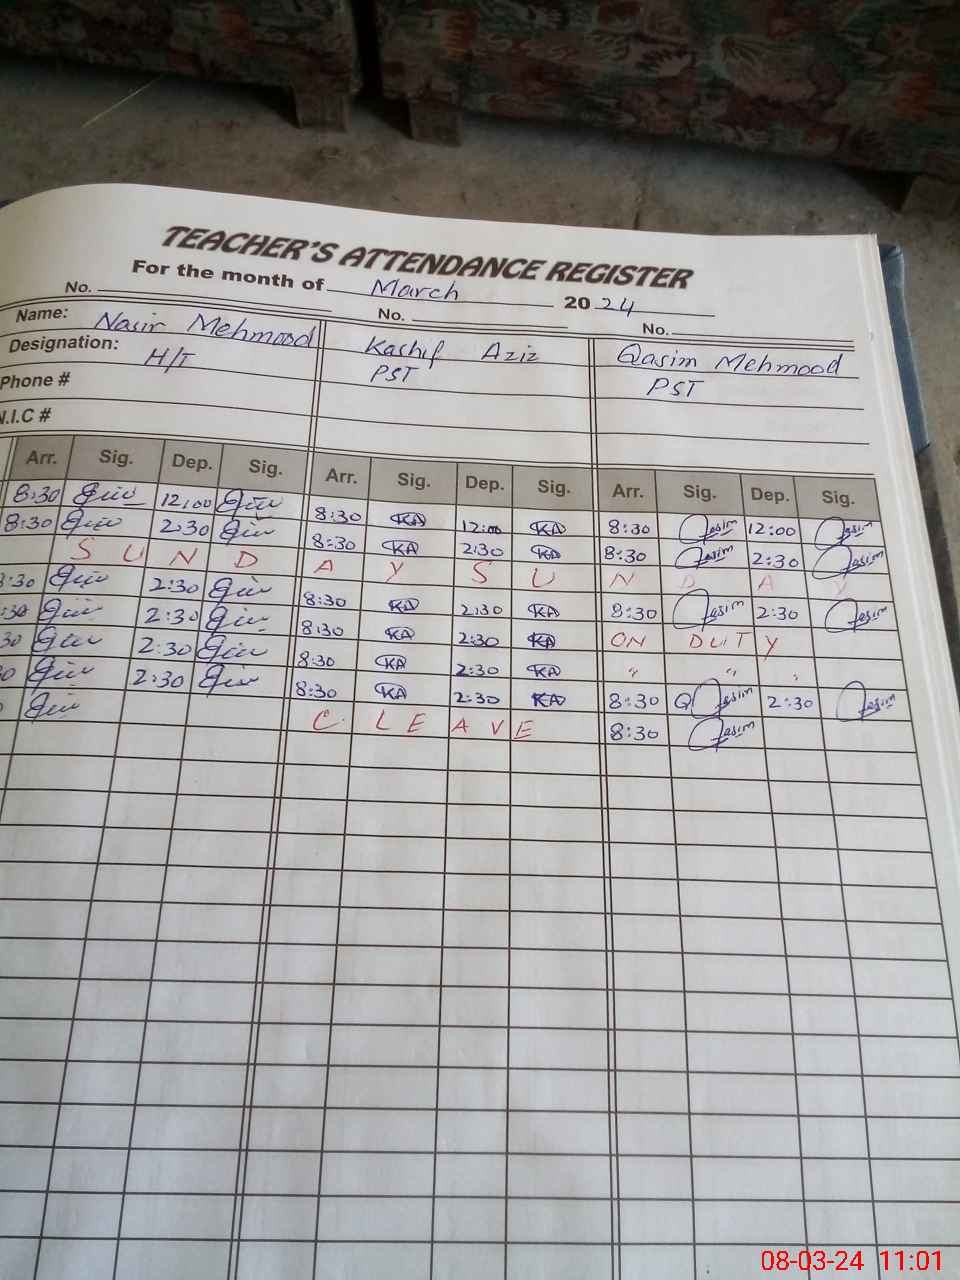 TEACHER'S ATTENDANCE REGISTER
For the month of March 2024
No. No. No.
Name: Nasir Mehmood Kashif Aziz Qasim Mehmood
Designation: H/T PST PST
Phone #
N.I.C #
Arr. Sig. Dep. Sig. Arr. Sig. Dep. Sig. Arr. Sig. Dep. Sig.
8:30 12:00 8:30 KA 12:00 KA 8:30 Qasim 12:00 Qasim
8:30 2:30 8:30 KA 2:30 KA 8:30 Qasim 2:30 Qasim
S U N D A Y S U N D A Y
:30 2:30 8:30 KA 2:30 KA 8:30 Qasim 2:30 Qasim
:30 2:30 8:30 KA 2:30 KA ON DUTY
30 2:30 8:30 KA 2:30 KA " " "
0 2:30 8:30 KA 2:30 KA 8:30 Q Qasim 2:30 Qasim
C. L E A V E 8:30 Qasim
08-03-24 11:01